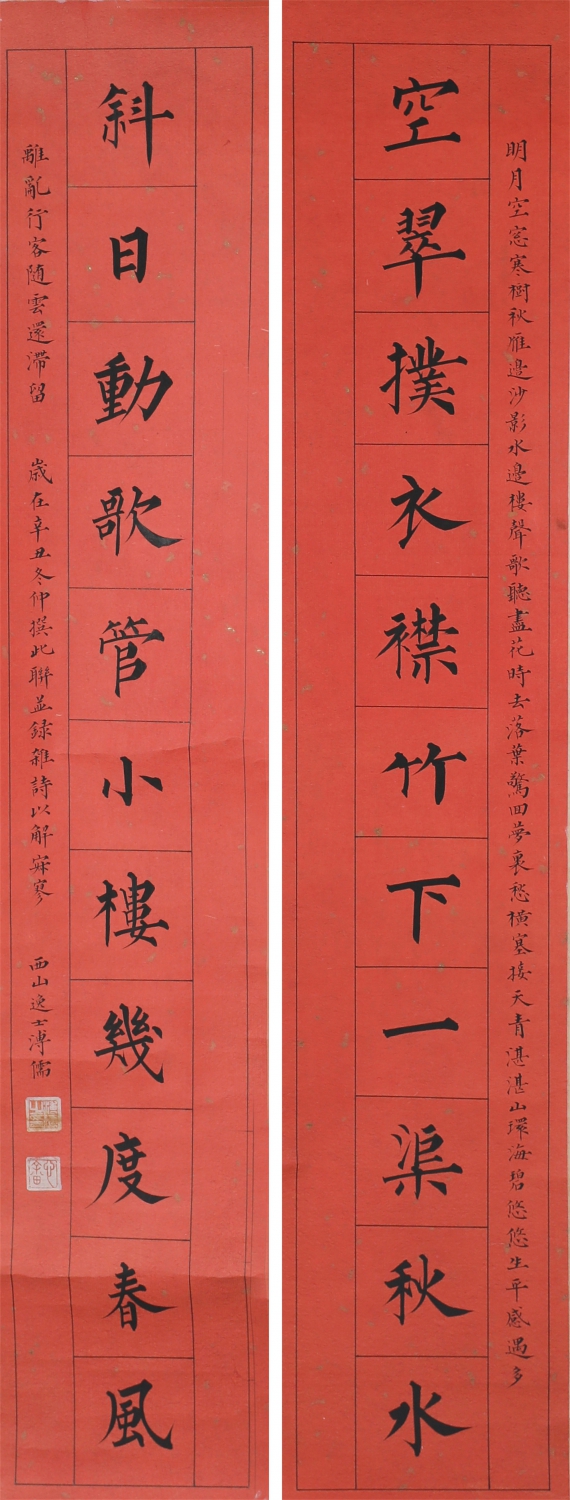 明月空窓寒樹秋雁邊沙影水邊樓聲歌聽盡花時去落葉驚回夢裏愁橫塞接天青湛湛山環海碧悠悠生平感遇多
空翠撲衣襟竹下一渠秋水
斜日動歌管小樓幾度春風
離亂行客随雲還滯留 歲在辛丑冬仲撰此聯並録雜詩以解寂寥 西山逸士溥儒